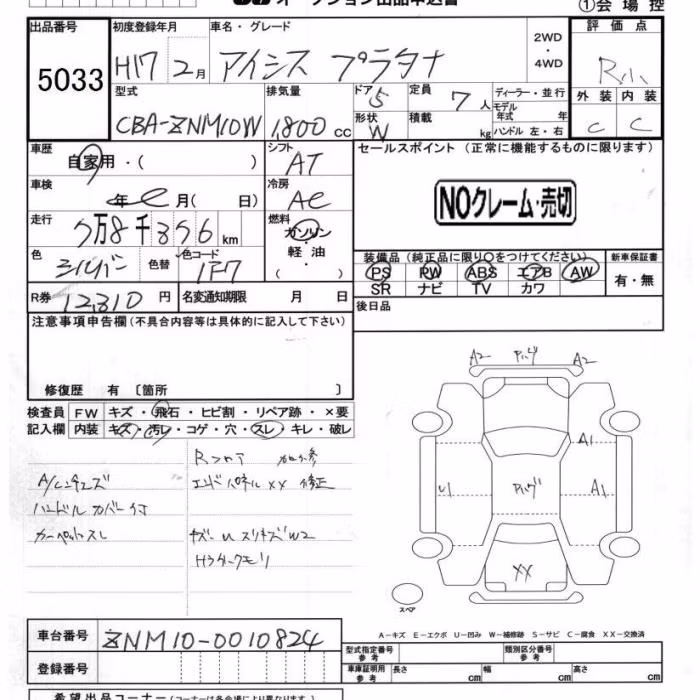 オークション出品申込書
①会場控
出品番号
5033
初度登録年月
H17 2月
車名・グレード
アイシス プラタナ
2WD
・
4WD
評価点
型式
CBA-ZNM10W
排気量
1,800 cc
ドア 5
形状 W
定員 7 人
積載 kg
ディーラー・並行
モデル年式 年
ハンドル 左・右
外装 内装
C C
車歴
自家用・( )
シフト
AT
セールスポイント(正常に機能するものに限ります)
車検
年 月( 日)
冷房
AC
NOクレーム・売切
走行
5万8千356 km
燃料
ガソリン
軽油
( )
色
シルバー
色替
色コード
1F7
装備品(純正品に限り〇をつけてください)
PS PW ABS エアB AW
SR ナビ TV カワ
新車保証書
有・無
R券 12,310 円
名変通知期限 月 日
後日品
注意事項申告欄(不具合内容等は具体的に記入して下さい)
修復歴 有〔箇所 〕
検査員
記入欄
FW キズ・飛石・ヒビ割・リペア跡・×要
内装 キズ・汚レ・コゲ・穴・スレ・キレ・破レ
ハンドルカバー付
エンドパネルXX 修正
A2 A2
A1
U1 A1
XX
スペア
A-キズ E-エクボ U-凹み W-補修跡 S-サビ C-腐食 XX-交換済
車台番号
ZNM10-0010824
登録番号
型式指定番号
参考
類別区分番号
参考
車庫証明用
参考
長さ cm
幅 cm
高さ cm
希望出品コーナー(コーナーは各会場により異なります)